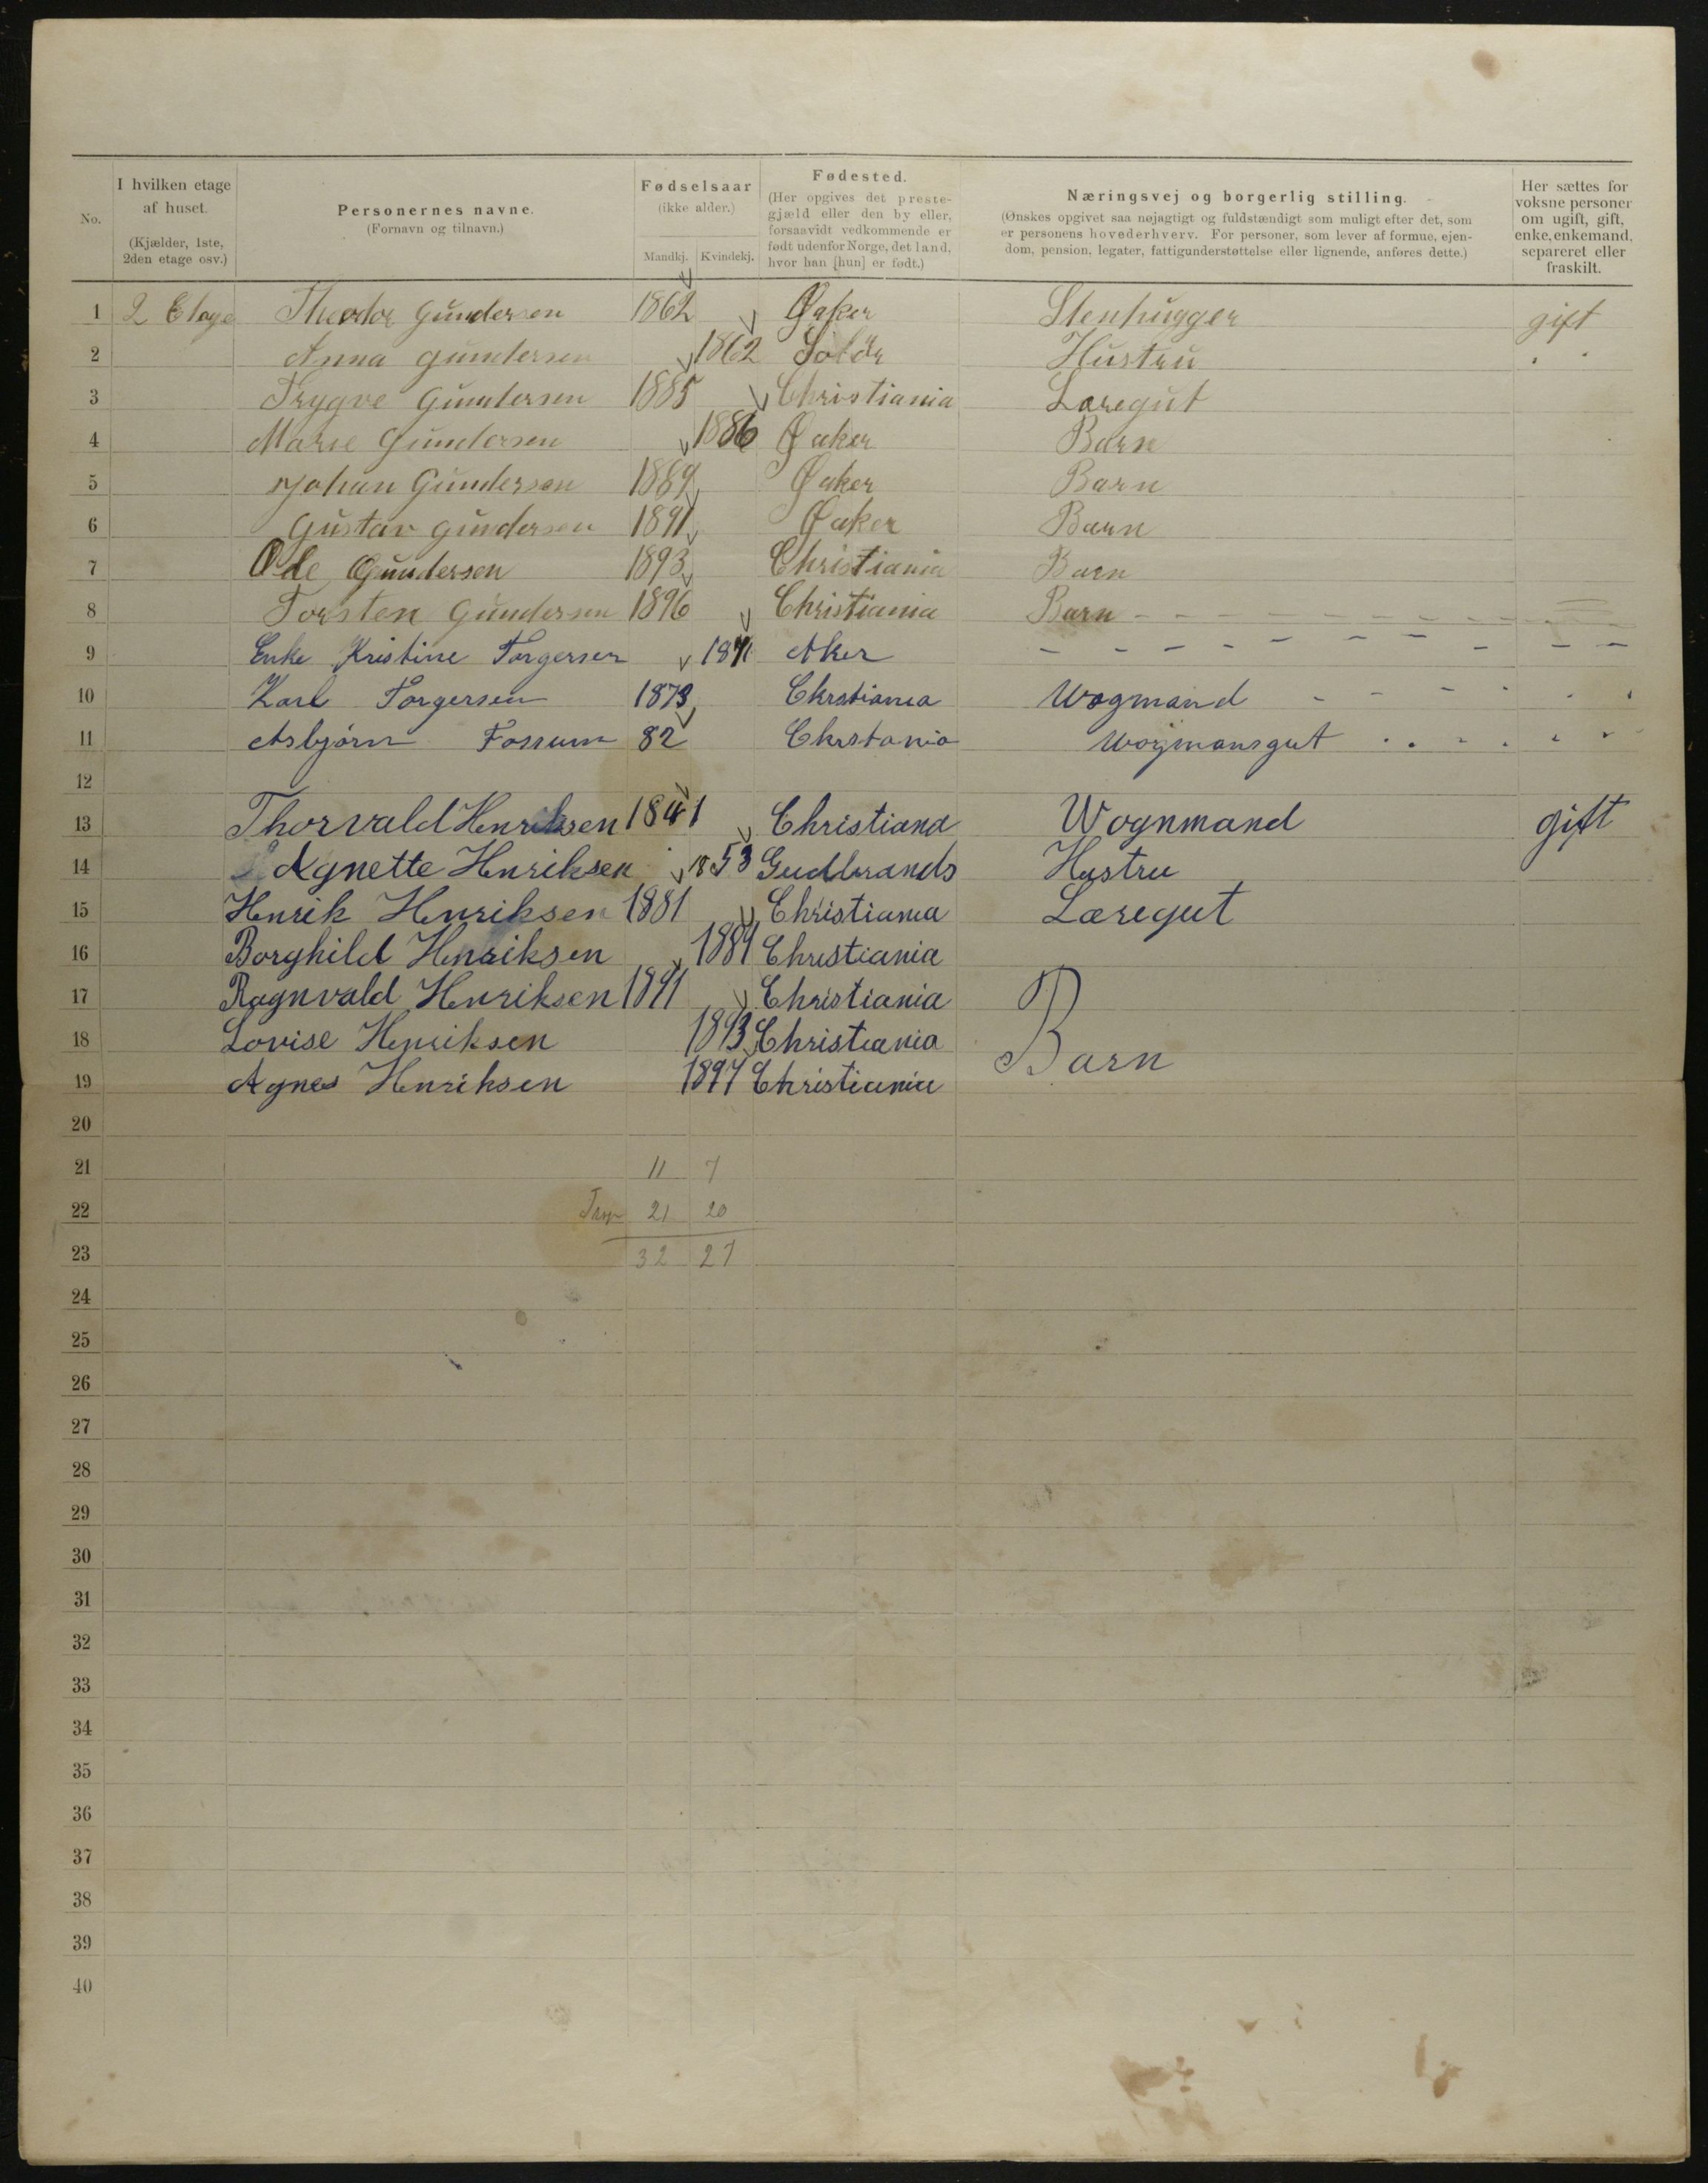 No. I hvilken etage af huset. (Kjælder, 1ste, 2den etage osv.) Personernes navne. (Fornavn og tilnavn.) Fødselsaar (ikke alder.) Mandkj. Kvindekj. Fødested. (Her opgives det prestegjæld eller den by eller, forsaavidt vedkommende er født udenfor Norge, det land, hvor han [hun] er født.) Næringsvej og borgerlig stilling. (Ønskes opgivet saa nøjagtigt og fuldstændigt som muligt efter det, som er personens hovederhverv. For personer, som lever af formue, ejendom, pension, legater, fattigunderstøttelse eller lignende, anføres dette.) Her sættes for voksne personer om ugift, gift, enke, enkemand, separeret eller fraskilt.
1 2 Etage Theodor Gundersen 1862 Øaker Stenhugger gift
2 Anna Gundersen 1862 Solør Hustru
3 Trygve Gundersen 1885 Christiania Læregut
4 Marie Gundersen 1886 Øaker Barn
5 Johan Gundersen 1889 Øaker Barn
6 Gustav Gundersen 1891 Øaker Barn
7 Ole Gundersen 1893 Christiania Barn
8 Torsten Gundersen 1896 Christiania Barn
9 Enke Kristine Torgersen Aker
10 Karl Torgersen 1873 Chrstiania Wogmand
11 Asbjørn Fossum 82 Chrstania Wogmansgut
12
13 Thorvald Henriksen 1841 Christiana Wognmand gift
14 Agnette Henriksen 1853 Gudbrands Hustru
15 Henrik Henriksen 1881 Christiania Læregut
16 Borghild Henriksen 1889 Christiania
17 Ragnvald Henriksen 1891 Christiania
18 Lovise Henriksen 1893 Christiania Barn
19 Agnes Henriksen 1897 Christiania
20
21 11 7
22 21 20
23 32 27
24
25
26
27
28
29
30
31
32
33
34
35
36
37
38
39
40